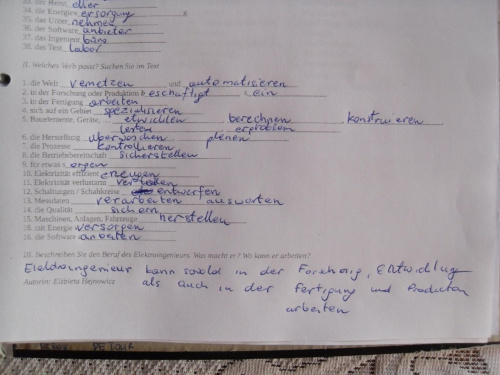 33. der Herst eller
34. die Energiev ersorgung
35. das Unter nehmen
36. der Software anbieter
37. das Ingenieur büro
38. das Test labor
II. Welches Verb passt? Suchen Sie im Text
1. die Welt vernetzen und automatisieren
2. in der Forschung oder Produktion b eschäftigt s ein
3. in der Fertigung arbeiten
4. sich auf ein Gebiet spezialisieren
5. Bauelemente, Geräte, ... entwicklen berechnen konstruieren
testen erproblem
6. die Herstellung überwachen planen
7. die Prozesse kontrollieren
8. die Betriebsbereitschaft sicherstellen
9. für etwas s orgen
10. Elektrizität effizient erzeugen
11. Elektrizität verlustarm verteilen
12. Schaltungen / Schaltkreise entwerfen
13. Messdaten verarbeiten auswerten
14. die Qualität sichern
15. Maschinen, Anlagen, Fahrzeuge herstellen
16. mit Energie versorgen
16. die Software anbieten
III. Beschreiben Sie den Beruf des Elektroingenieurs. Was macht er? Wo kann er arbeiten?
Elektroingenieur kann sowohl in der Forschung, Entwicklung
Autorin: Elżbieta Hejnowicz als auch in der Fertigung und Production
arbeiten